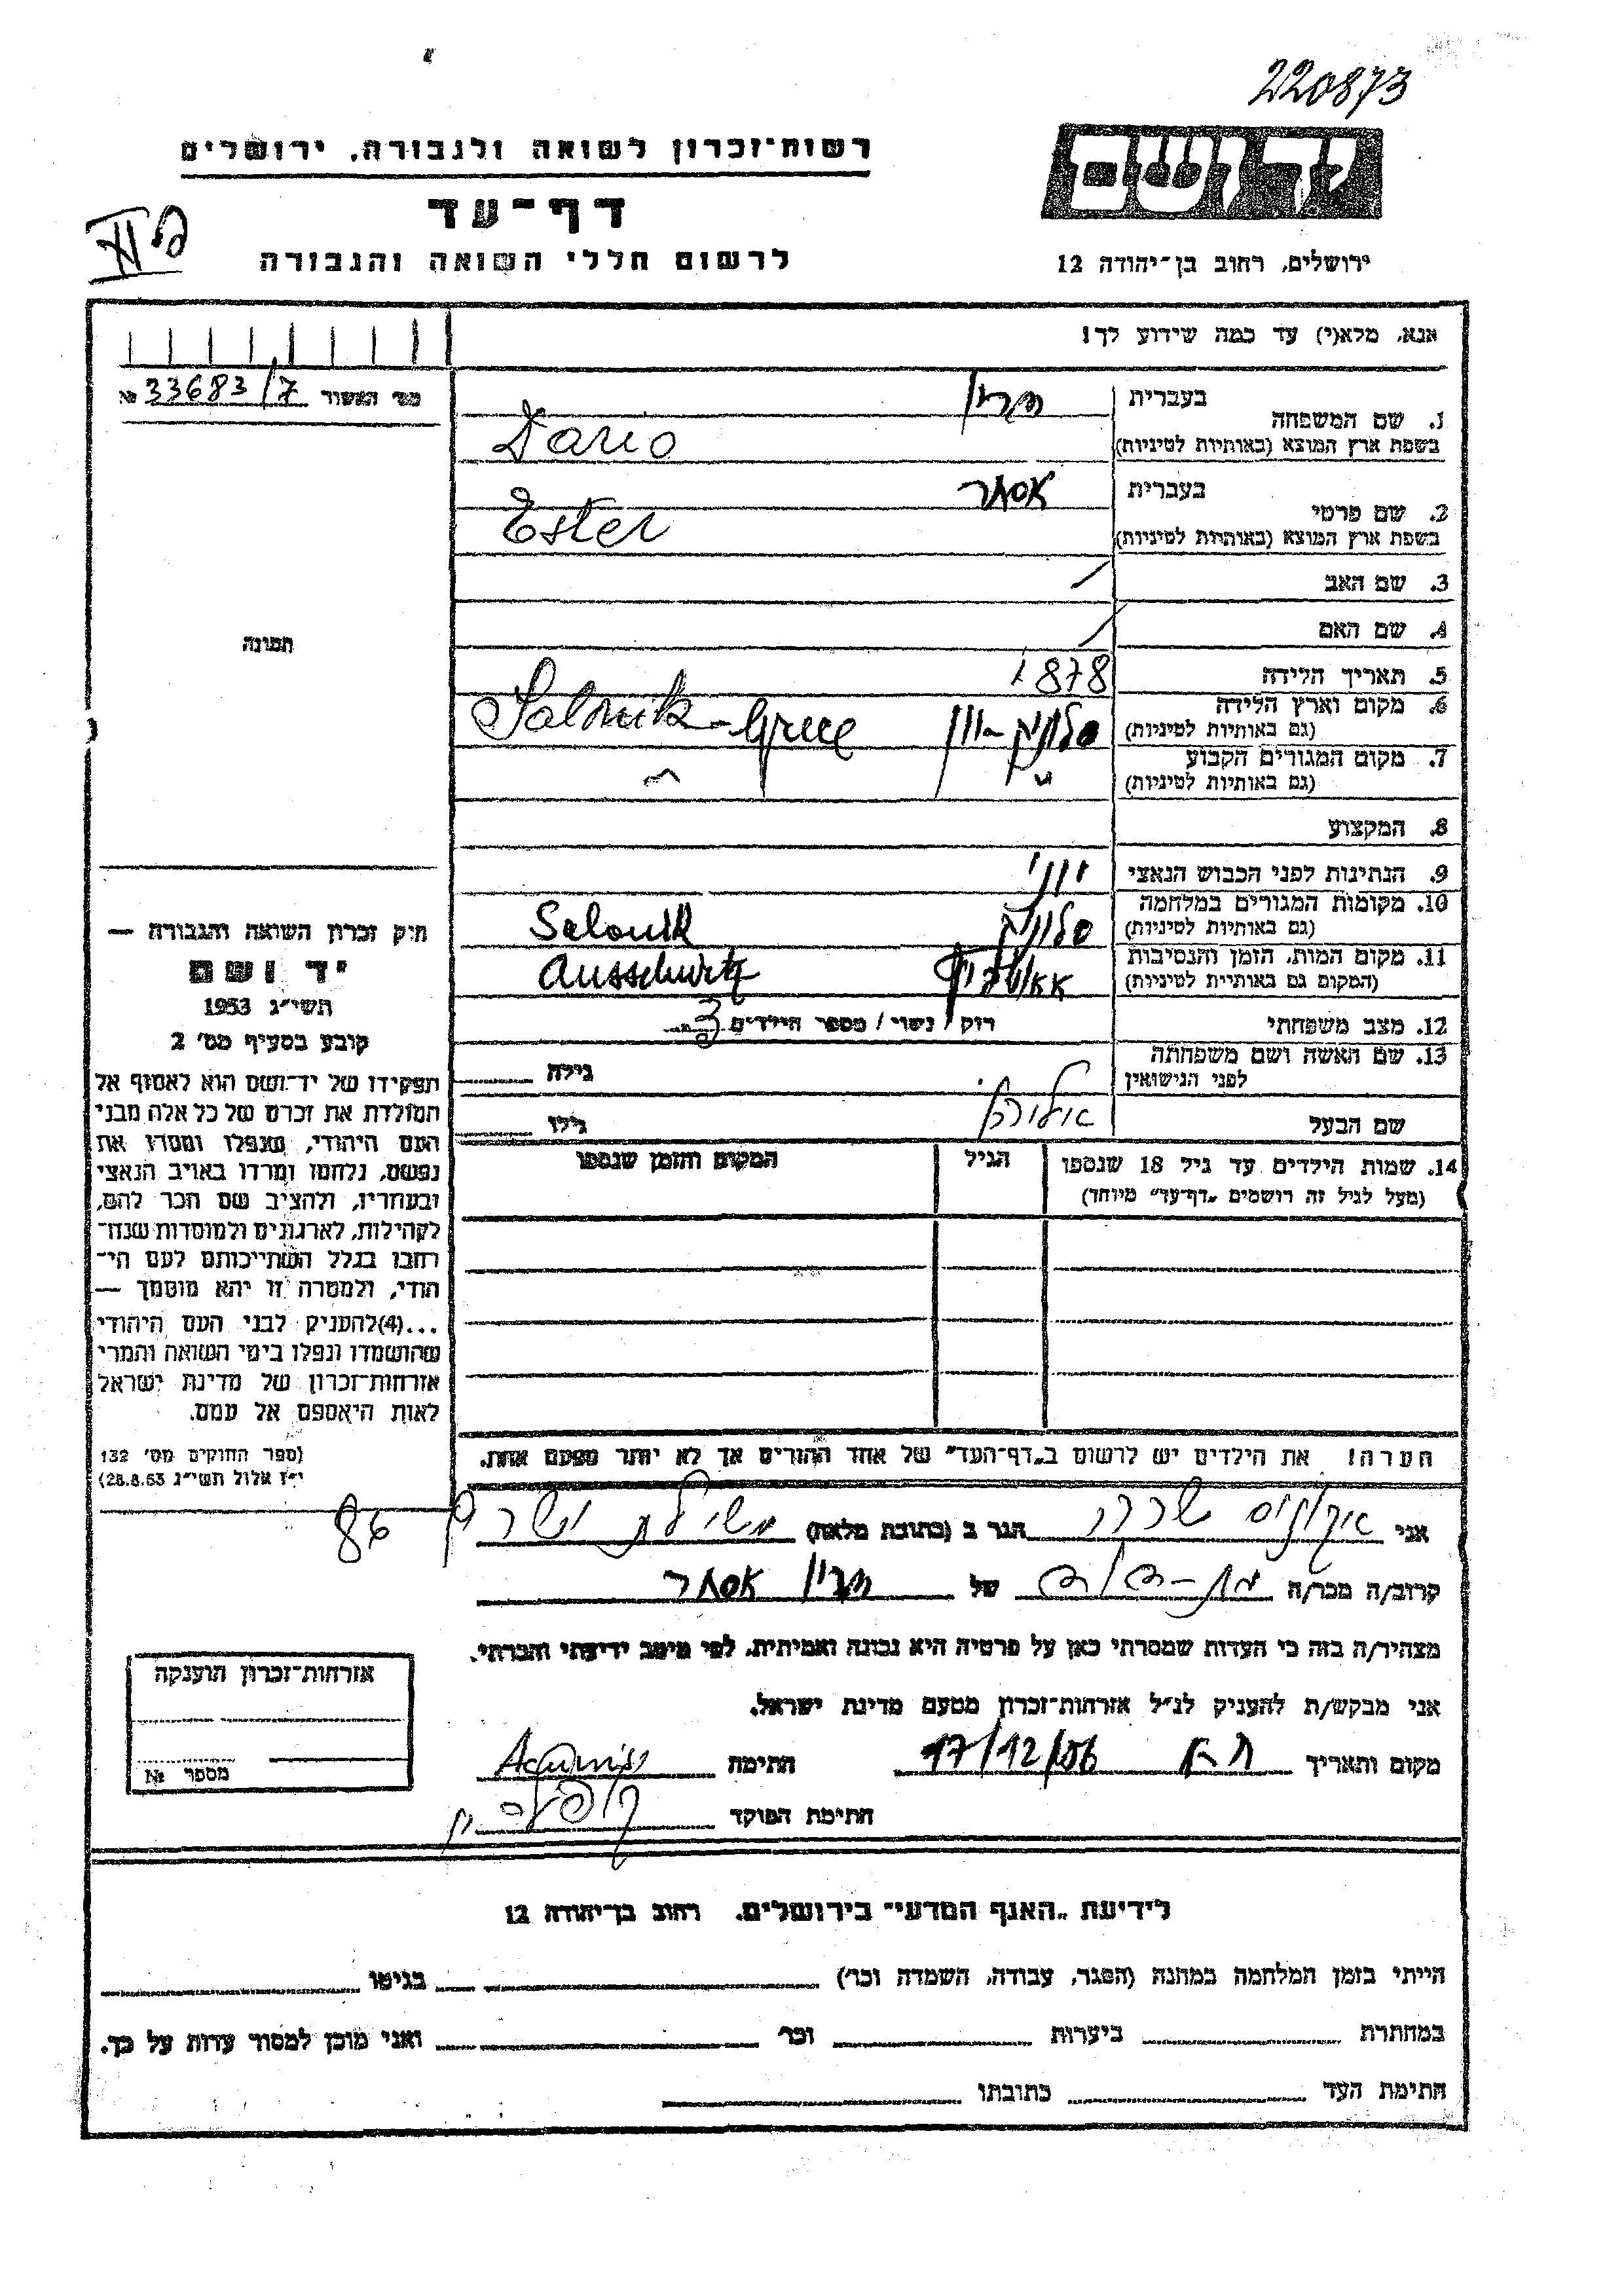 220873
רשות־זכרון לשואה ולגבורה, ירושלים
דף־עד
לרשום חללי השואה והגבורה
יד ושם
ירושלים, רחוב בן־יהודה 12
אנא, מלא(י) עד כמה שידוע לך!
מס׳ האשור № 33683/7
1. שם המשפחה בעברית
בשפת ארץ המוצא (באותיות לטיניות) Dario
2. שם פרטי בעברית אסתר
בשפת ארץ המוצא (באותיות לטיניות) Ester
3. שם האב /
4. שם האם /
תמונה
5. תאריך הלידה 1878
6. מקום וארץ הלידה סלוניקי - יוון Salonik - Grece
(גם באותיות לטיניות)
7. מקום המגורים הקבוע
(גם באותיות לטיניות) " "
8. המקצוע
9. הנתינות לפני הכבוש הנאצי יווני
10. מקומות המגורים במלחמה סלוניקי Salonik
(גם באותיות לטיניות)
11. מקום המות, הזמן והנסיבות Ausschwitz
(המקום גם באותיית לטיניות)
12. מצב משפחתי רוק / נשוי / מספר הילדים 3
13. שם האשה ושם משפחתה גילה
לפני הנישואין
שם הבעל גילו
14. שמות הילדים עד גיל 18 שנספו הגיל המקום והזמן שנספו
(מעל לגיל זה רושמים „דף־עד״ מיוחד)
חוק זכרון השואה והגבורה —
יד ושם
תשי״ג 1953
קובע בסעיף מס׳ 2
תפקידו של יד־ושם הוא לאסוף אל
המולדת את זכרם של כל אלה מבני
העם היהודי, שנפלו ומסרו את
נפשם, נלחמו ומרדו באויב הנאצי
ובעוזריו, ולהציב שם וזכר להם,
לקהילות, לארגונים ולמוסדות שנח־
רבו בגלל השתייכותם לעם הי־
הודי, ולמטרה זו יהא מוסמך —
...(4)להעניק לבני העם היהודי
שהושמדו ונפלו בימי השואה והמרי
אזרחות־זכרון של מדינת ישראל
לאות היאספם אל עמם.
(ספר החוקים מס׳ 132
י״ז אלול תשי״ג 28.8.53)
הערה! את הילדים יש לרשום ב„דף־העד״ של אחד ההורים אך לא יותר מפעם אחת.
אני הגר ב (כתובת מלאה) 86
קרוב/ה מכר/ה של אסתר
מצהיר/ה בזה כי העדות שמסרתי כאן על פרטיה היא נכונה ואמיתית, לפי מיטב ידיעתי והכרתי.
אני מבקש/ת להעניק לנ״ל אזרחות־זכרון מטעם מדינת ישראל.
מקום ותאריך ת״א 17/12/56 חתימה
חתימת הפוקד
אזרחות־זכרון הוענקה
מספר №
לידיעת „האגף המדעי״ בירושלים, רחוב בן־יהודה 12
הייתי בזמן המלחמה במחנה (הסגר, עבודה, השמדה וכו׳) בגיטו
במחתרת ביערות וכו׳ ואני מוכן למסור עדות על כך.
חתימת העד כתובתו